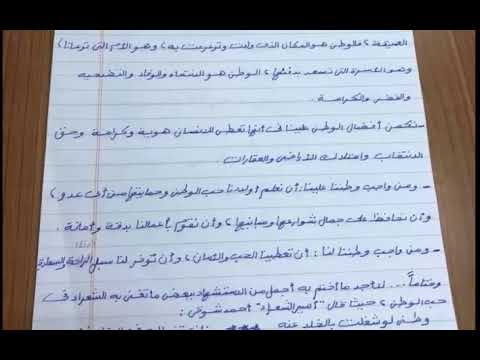 العميقة ، فالوطن هو المكان الذى ولدت وترعرعت به ، وهو الأم التى ترعانا ،
وهو الأسرة التى نسعد بدفئها ، الوطن هو الانتماء والوفاء والتضحيه
والفخر والكرامة .
- تكمن أفضال الوطن علينا فى أنها تعطى للانسان هوية وكرامة وحق
الانتخاب وامتلاك الأراضى والعقارات .
- ومن واجب وطننا علينا : أن نعلم أولادنا حب الوطن وحمايتها من أى عدو ،
وأن نحافظ على جمال شوارعها ومبانيها ، وأن نقوم بأعمالنا بدقة وأمانة .
- ومن واجب وطننا لنا : أن تعطينا الحب والأمان ، وأن توفر لنا سبل الراحة والسعادة
وختاماً ... لا أجد ما أختم به أجمل من الاستشهاد ببعض ما تغنى به الشعراء فى
حب الوطن ، حيث قال " أمير الشعراء " أحمد شوقى :
وطنى لو شغلت بالخلد عنه